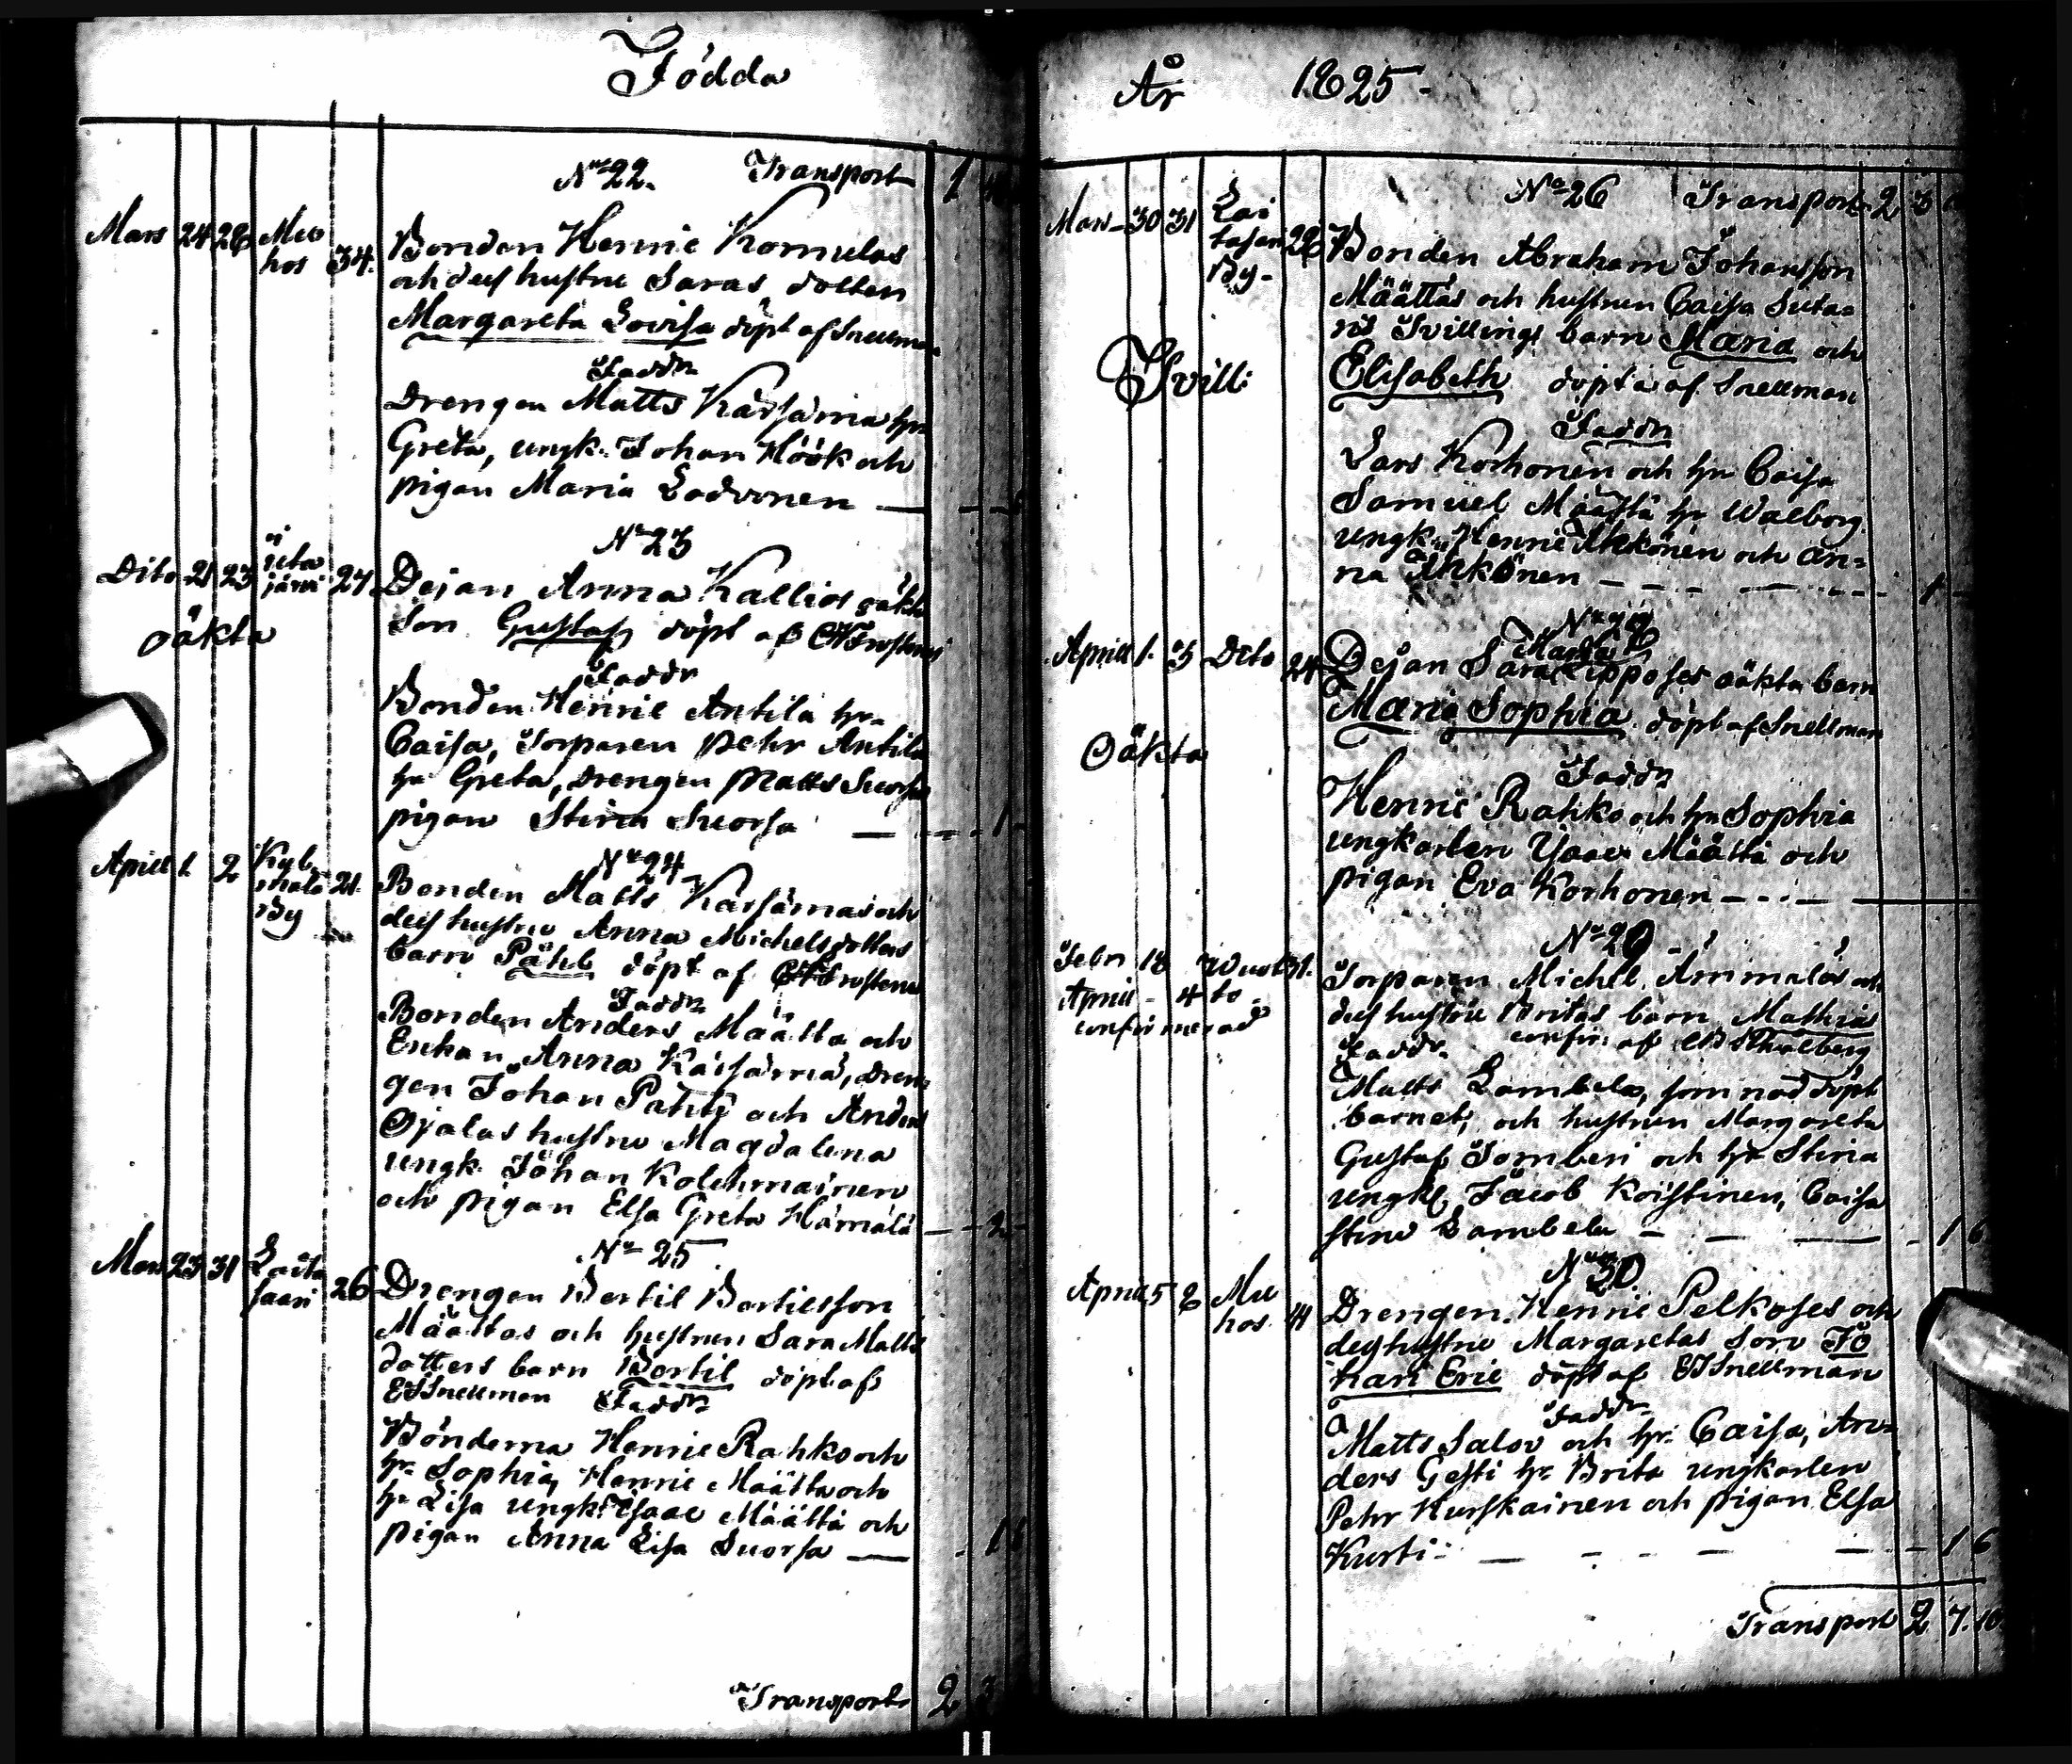 Födda
No 22. Transport 1
Mars 24 26 Mu
hos 34.
Bonden Henric Komulas
och dess hustru Saras dotter
Margareta Lovisa döpt af Snellman
Faddr
Drengen Matts Kärsämä hr
Greta, ungk. Johan Höök och
pigan Maria Ladvonen
No 23
Dito 21 23 järvi 27.
oäkta
Dejan Anna Kallios oäkta
Son Gustaf döpt af
Faddr
Bonden Henric Antila hr
Caisa, Torparen Pehr Antila
hr Greta, Drengen Matts Suorsa
pigan Stina Suorsa 1
No 24
April 1. 2 Kyl
mälä 21.
By
Bonden Matts Kärsämäs och
dess hustru Anna Michelsdotters
barn Påhl döpt af
Faddr
Bonden Anders Määtta och
Enkan Anna Kärsämä, Dren
gen Johan Pahti och Anders
Ojalas hustru Magdalena
ungk. Johan Kolehmainen
och pigan Elsa Greta Hämälä 2
No 25
Mars 23 31 Laita
saari 26
Drengen Bertil Bertilsson
Määttas och hustrun Sara Matts
dotters barn Bertil döpt af
E Snellman Faddr
Bönderna Henric Rahko och
hr Sophia, Henric Määtta och
hr Lisa ungk. Isaac Määttä och
pigan Anna Lisa Suorsa
Transport 2 3
År 1825.
No 26 Transport 2 3
Mars 30 31 Lai
tasari 28
By
Tvill:
Bonden Abraham Johansson
Määttäs och hustrun Caisa Suta=
ris Tvillings barn Maria och
Elisabeth döpta af Snellman
Faddr
Lars Korhonen och hr Caisa
Samuel Määttä hr Walborg
ungk. Henric Ahkönen och An=
na Ahkönen 1
April 1. 3 Dito 24
Oäkta
Dejan Sara oäkta barn
Maria Sophia döpt af Snellman
Faddr
Henric Rahko och hr Sophia
ungkarlen Isaac Määttä och
pigan Eva Korhonen
No 29
Febr 18 31.
April 4 to
confirmerad
Torparen Michel Ämmälös och
dess hustru Britas barn Mathias
Faddr. confir. af
Matts Lambela, som nöddöpt
barnet, och hustrun Margareta
Gustaf Tomberi och hr Stina
ungk. Jacob Koistinen, Caisa
Stina Lambela 1 6
No 30
April 5 8 Mu
hos 41
Drengen Henric Pelkoses och
dess hustru Margaretas Son Jo
han Eric döpt af E Snellman
Faddr
Matts Salov och hr Caisa, An=
ders Gesti hr Brita ungkarlen
Pehr Hurskainen och pigan Elsa
Kurti 1 6
Transport 2 7.10